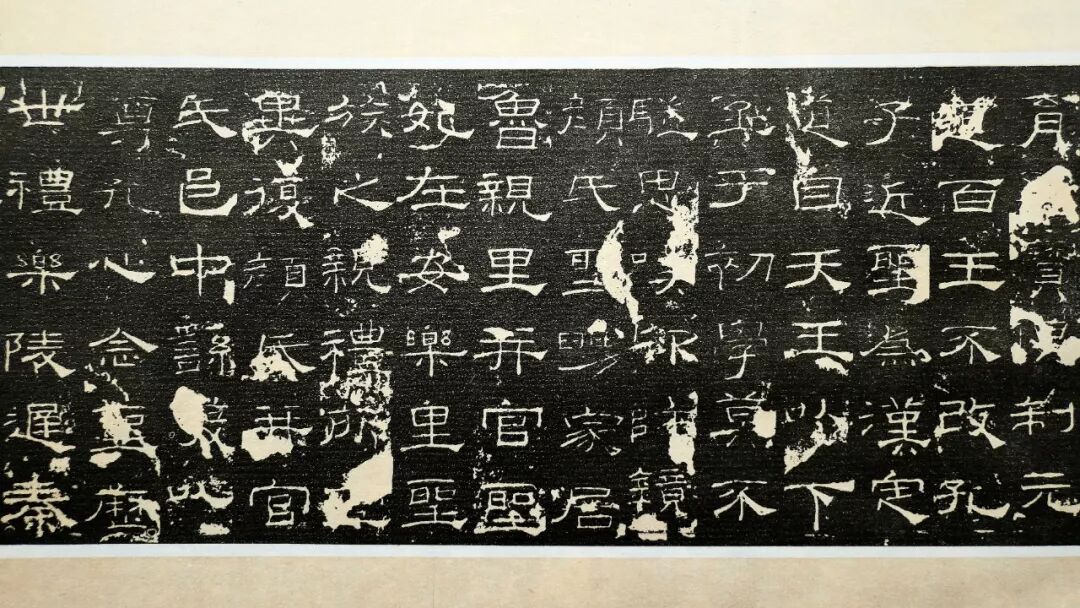 育寶俱制元
道百王不改孔
子近聖為漢定
道自天王以下
至于初學莫不
騶思嘆卬師鏡
顏氏聖舅家居
魯親里并官聖
妃在安樂里聖
族之親禮所宜
異復顏氏并官
氏邑中繇發以
尊孔心念聖歷
世禮樂陵遲秦